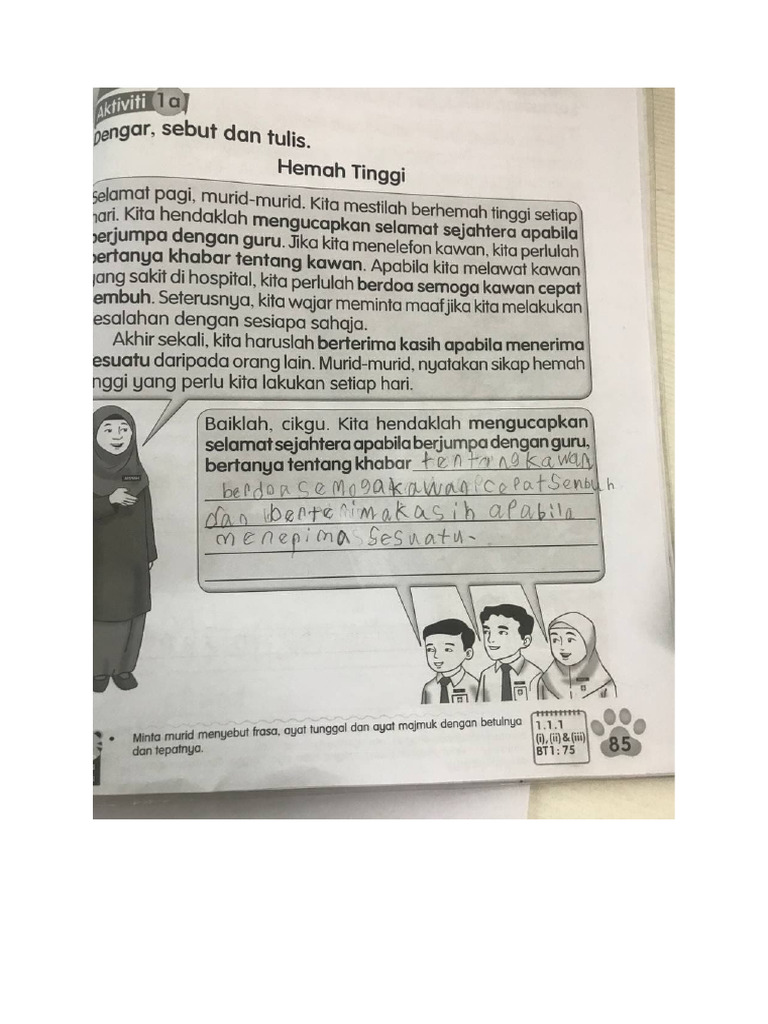 Aktiviti 1a
Dengar, sebut dan tulis.
Hemah Tinggi
Selamat pagi, murid-murid. Kita mestilah berhemah tinggi setiap
hari. Kita hendaklah mengucapkan selamat sejahtera apabila
berjumpa dengan guru. Jika kita menelefon kawan, kita perlulah
bertanya khabar tentang kawan. Apabila kita melawat kawan
yang sakit di hospital, kita perlulah berdoa semoga kawan cepat
embuh. Seterusnya, kita wajar meminta maaf jika kita melakukan
esalahan dengan sesiapa sahaja.
Akhir sekali, kita haruslah berterima kasih apabila menerima
esuatu daripada orang lain. Murid-murid, nyatakan sikap hemah
nggi yang perlu kita lakukan setiap hari.
Baiklah, cikgu. Kita hendaklah mengucapkan
selamat sejahtera apabila berjumpa dengan guru,
bertanya tentang khabar tentang kawan
berdoa semoga kawan cepat Senbuh
dan berterima kasih apabila
menerima Sesuatu.
Minta murid menyebut frasa, ayat tunggal dan ayat majmuk dengan betulnya
dan tepatnya.
1.1.1
(i), (ii) & (iii)
BT1 : 75
85